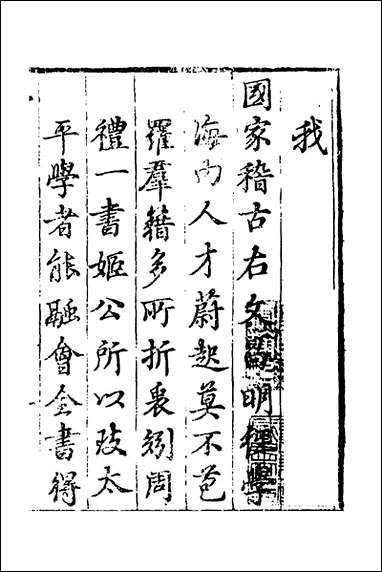 我
國家稽古右文昌明經學
海内人才蔚起莫不苞
羅羣籍多所折衷矧周
禮一書姬公所以致太
平學者能融會全書得